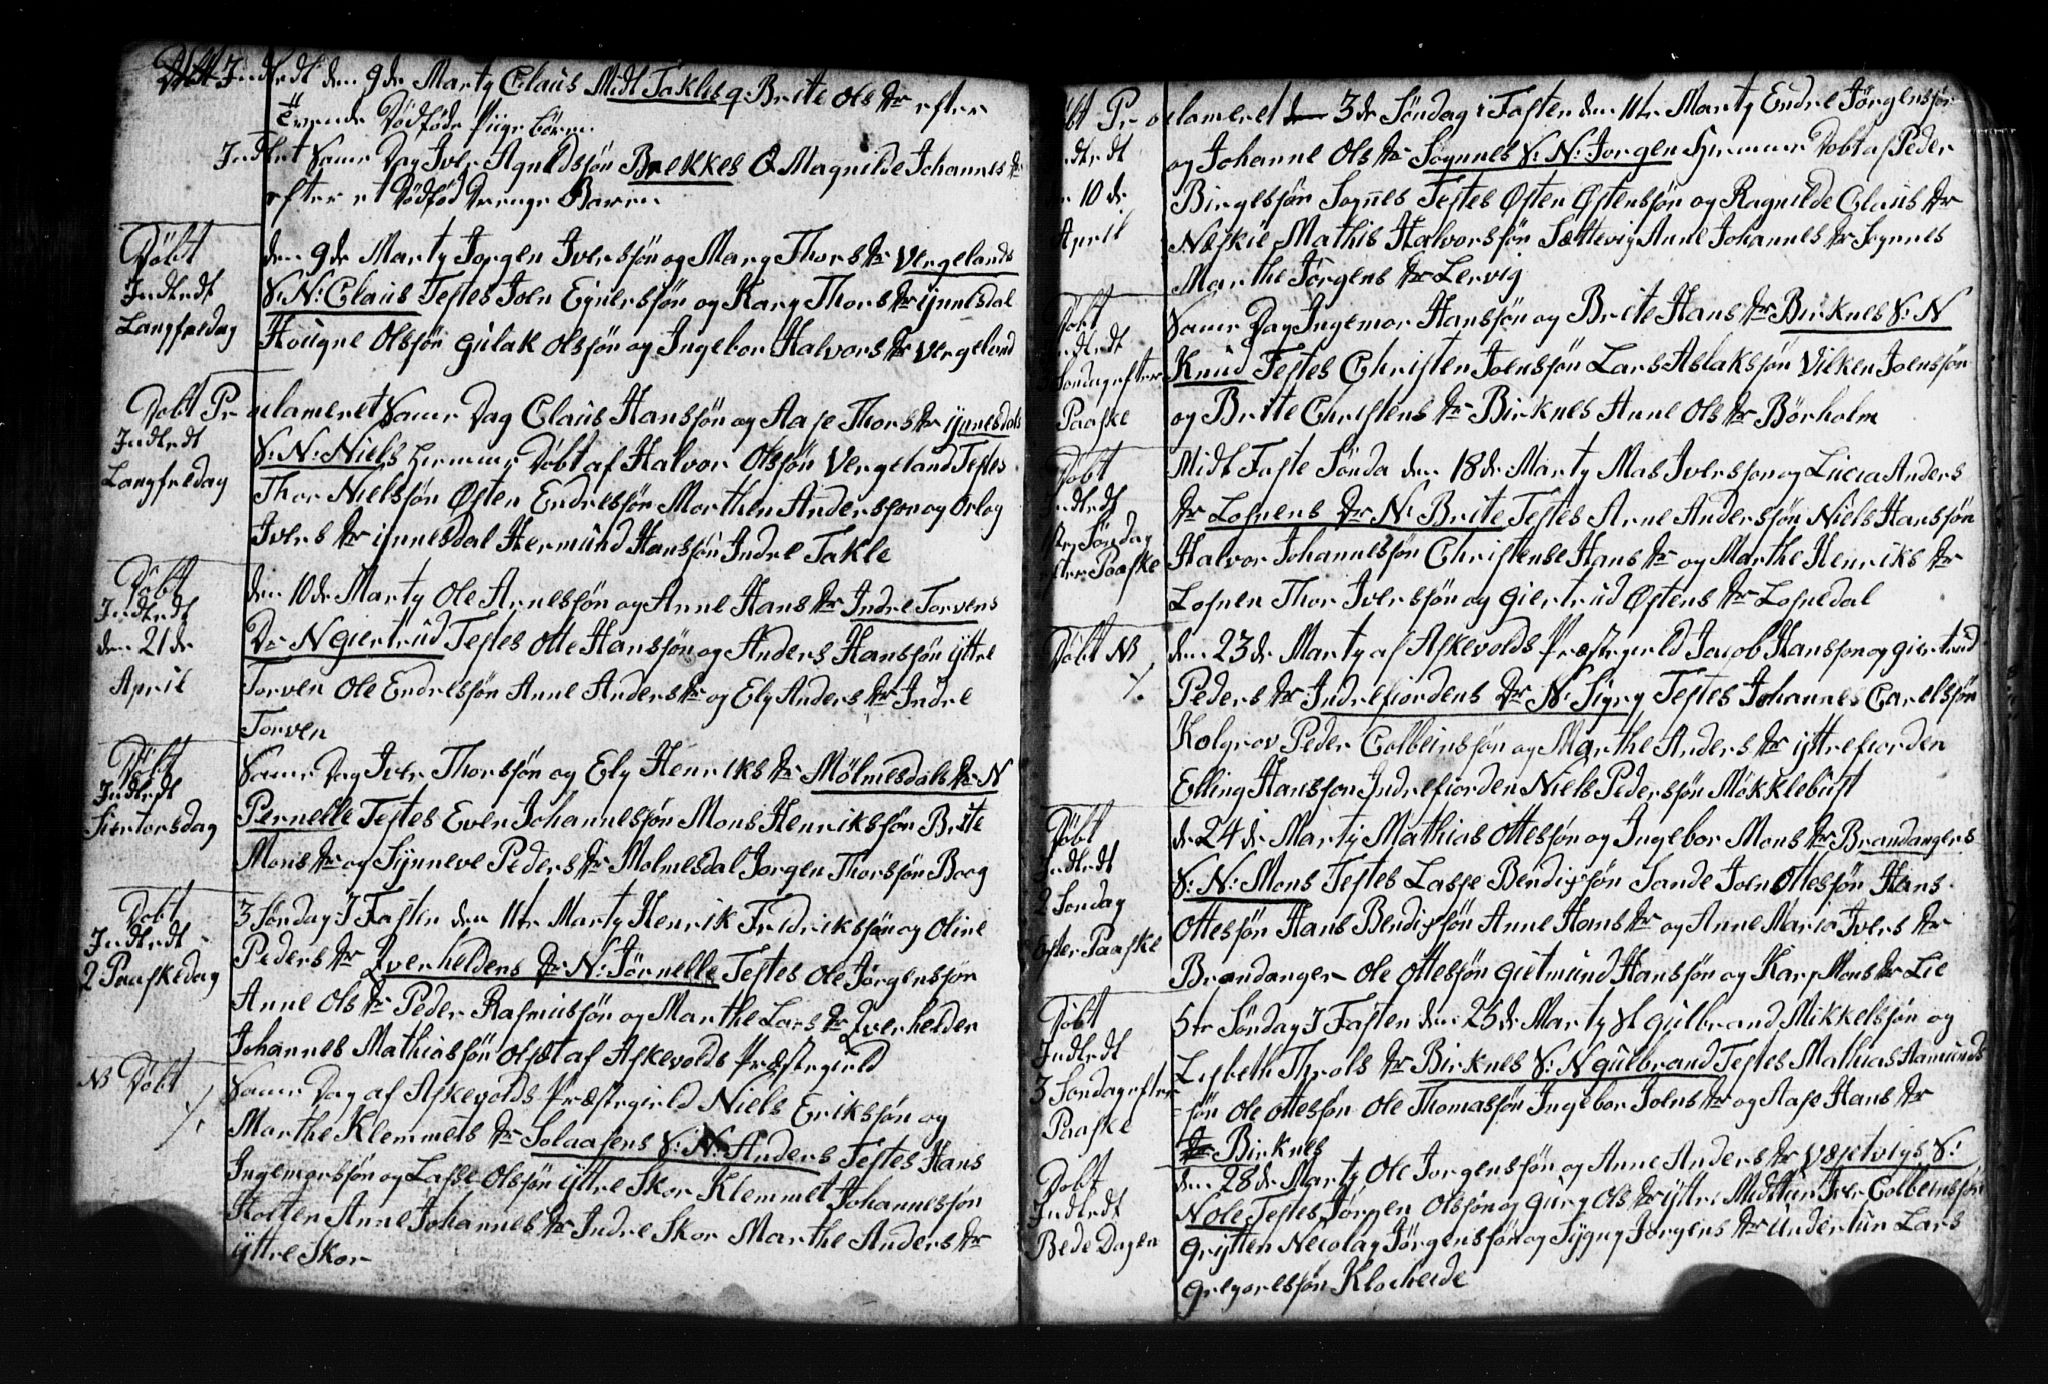 Indledt den 9de Marty Claus Midt Takles q. Brite Ols dtr efter
Tvende Dödföde Piige börn
Indledt Same Dag Iver Agnedssön Brekkes Q Magnilde Johannes dtr
efter et Dödföd Drenge Barn
Döbt
Indledt
Langfredag
den 9de Marty Jorgen Iverssön og Mary Thors dtr Vergelands
S: N: Claus Testes Joen Eynerssön og Kary Thors dtr ijnnesdal
Hougne Olssön Gulak Olssön og Ingebor Halvors dtr Vergeland
Dobt Proclameret Same Dag Claus Hanssön og Aase Thors dtr ijnnesdals
Indledt
Langfredag
S: N: Niels hiemme Döbt af Halvor Olssön Vergeland Testes
Thor Nielssön Östen Endressön Morthen Anderssön og Orlog
Ivers dtr ijnnesdal Hermund Hanssön Indre Takle
Döbt
Indledt
den 21de
April
den 10de Marty Ole Arnessön og Anne Hans dtr Indre Torvens
Dr N Giertrud Testes Otte Hanssön og Anders Hanssön ijttre
Torven Ole Endressön Anne Anders dtr og Ely Anders dtr Indre
Torven
Döbt
Indledt
Siertorsdag
Same Dag Iver Thorssön og Ely Henriks dtr Mölmesdals dtr N
Pernelle Testes Even Johannessön Mons Henrikssön Brite
Mons dtr og Synneve Peders dtr Molmesdal Jorgen Thorssön Boog
Dobt
Indledt
2 Paaskedag
3 Söndag I Fasten den 11te Marty Henrik Fridrikssön og Oline
Peders dtr Qverheldens dtr N: Jörnelle Testes Ole Jörgenssön
Anne Ols dtr Peder Rasmussön og Marthe Lars dtr Qverhelden
Johannes Mathiassön Olset af Askevolds Præstegield
NB Döbt
Same Dag af Askevolds Præstegield Niels Erikssön og
Marthe Klemmets dtr Solaasens S: N: Anders Testes Hans
Ingemorssön og Lasse Olssön ijttre Skor Klemmet Johannessön
Holten Anne Johannes dtr Indre Skor Marthe Anders dtr
ijttre Skor
Döbt Proclameret 3de Söndag i Fasten den 11te Marty Endre Jörgenssön
Indledt
den 10de
April
og Johanne Ols dtr Sognnes S: N: Jorgen hiemme Dobt af Peder
Birgessön Sognes Testes Östen Östenssön og Ragnilde Claus dtr
Næskie Mathis Halvorssön Sættevig Anne Johannes dtr Sognnes
Marthe Jörgens dtr Lervig
Döbt
Indledt
Söndag efter
Paaske
Same Dag Ingemor Hanssön og Brite Hans dtr Birknes S: N
Knud Testes Christen Joenssön Lars Aslakssön Vilken Joenssön
og Brite Christens dtr Birknes Anne Ols dtr Börholm
Döbt
Indledt
1ste Söndag
efter Paaske
Midt Faste Sönda den 18de Marty Mas Iverssön og Lucia Anders
dtr Losnens Dtr N: Brite Testes Arne Anderssön Niels Hanssön
Halvor Johannessön Christense Hans dtr og Marthe Henriks dtr
Losnen Thor Iverssön og Giertrud Östens dtr Losnedal
Döbt NB
den 23de Marty af Askevolds Præstegield Jacob Hanssön og Giertrud
Peders dtr Indrefiordens Dtr N: Sigry Testes Johannes Carelssön
Kolgrov Peder Colbeinssön og Marthe Anders dtr ijttrefiorden
Elling Hanssön Indrefiorden Niels Pederssön Mökklebust
Döbt
Indledt
2 Söndag
Efter Paaske
de 24de Marty Mathias Ottessön og Ingebor Mons dtr Brandangers
S: N: Mons Testes Lasse Bendixsön Sande Joen Ottessön Hans
Ottessön Hans Bendixsön Anne Hans dtr og Anne Maria Ivers dtr
Brandanger Ole Ottessön Gietmund Hanssön og Kary Mons dtr Lie
Döbt
Indledt
3 Söndag efter
Paaske
5te Söndag I Fasten den 25de Marty Gulbrand Mikkelssön og
Lisbeth Throls dtr Birknes S: N Gulbrand Testes Mathias Aamunds
sön Ole Ottessön Ole Thomassön Ingebor Joens dtr og Aase Hans dtr
Birknes
Dobt
Indledt
Bede Dagen
den 28de Marty Ole Jorgenssön og Anne Anders dtr Væsetvigs S:
N Ole Testes Jörgen Olssön og Gury Ols dtr ijttre Midttun Iver Colbeinssön
Grytten Necolay Jörgenssön og Sygny Jorgens dtr Undertun Lars
Gregoriessön Klocheide